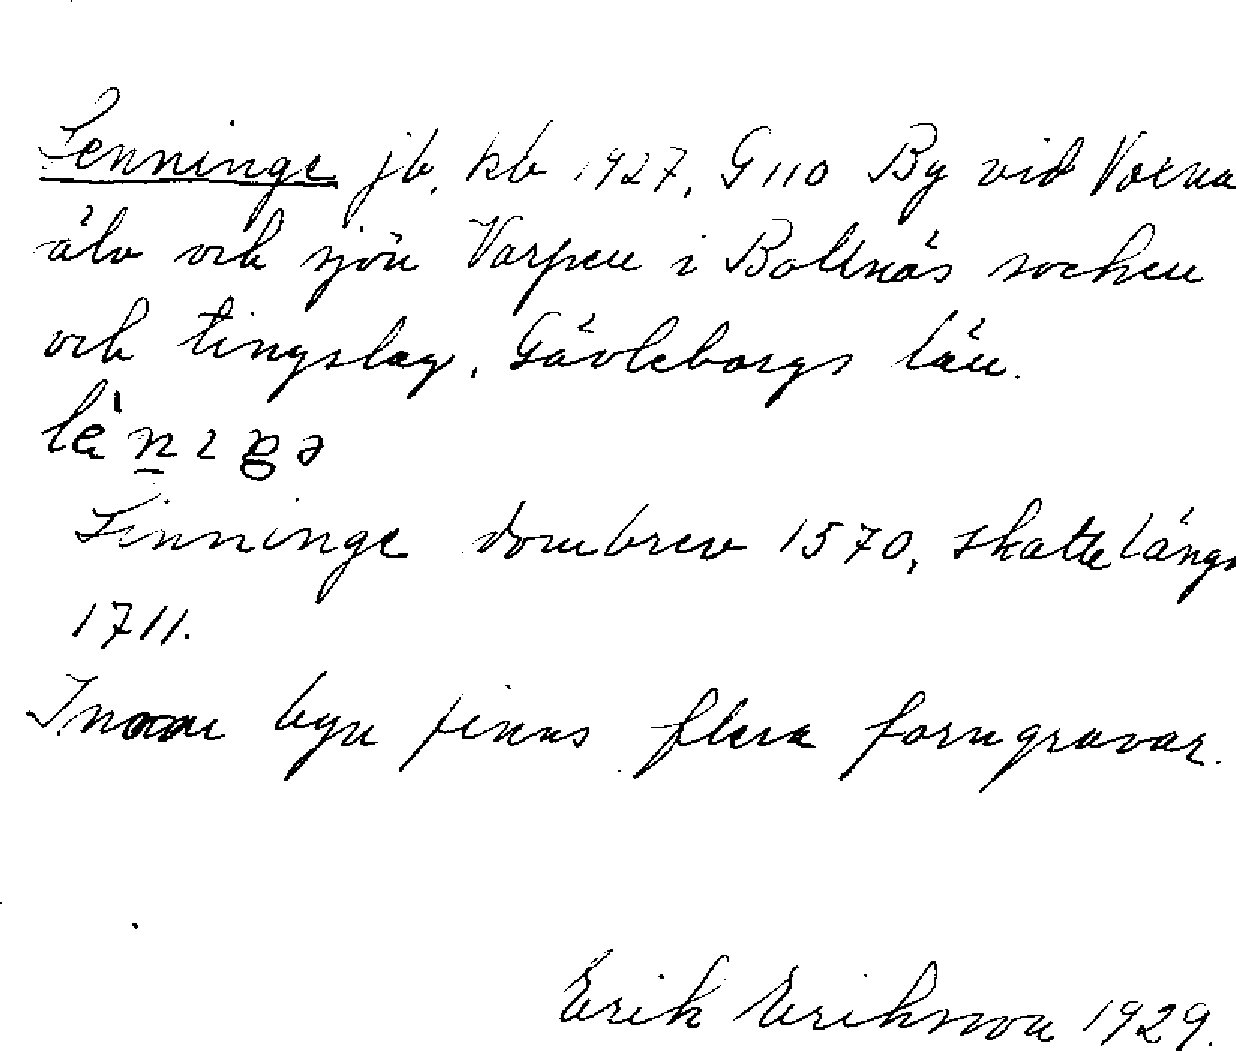 Lenninge jb, kb 1927, G 110 By vid Voxna
älv och sjön Varpen i Bollnäs socken
och tingslag, Gävleborgs län.
Linninge dombrev 1570, skattelängd
1711.
Inom byn finns flera forngravar.
Erik Eriksson 1929.